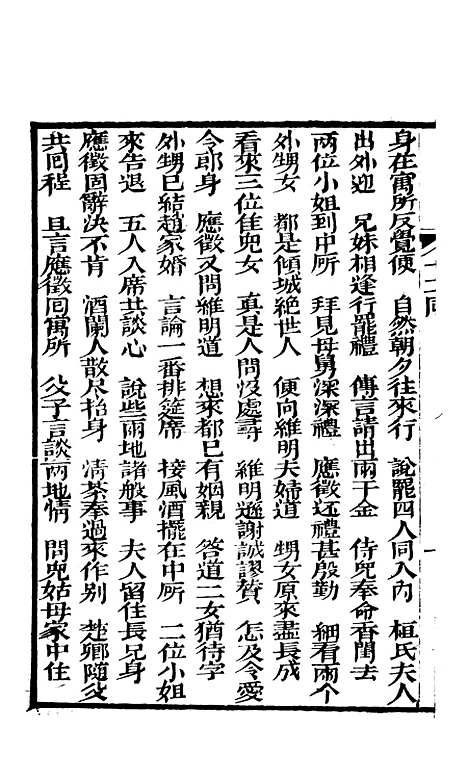 身在寓所反覺便　自然朝夕往來行　說罷四人同入內　桓氏夫人
出外迎　兄妹相逢行罷禮　傳言請出兩千金　侍兒奉命香閨去
兩位小姐到中所　拜見母舅深深禮　應徵还禮甚殷勤　細看兩个
外甥女　都是傾城絕世人　便向維明夫婦道　甥女原來盡長成
看來三位佳兒女　真是人間没處尋　維明遜謝誠謬賛　怎及令愛
令郎身　應徵又問維明道　想來都已有姻親　答道二女猶待字
外甥已結趙家婚　言論一番排筵席　接風酒擺在中所　二位小姐
來告退　五人入席共談心　說些兩地諸般事　夫人留住長兄身
應徵固辭决不肯　酒闌人散尽抬身　清茶奉過來作別　楚卿隨父
共囘程　且言應徵囘寓所　父子言談兩地情　問兒姑母家中住